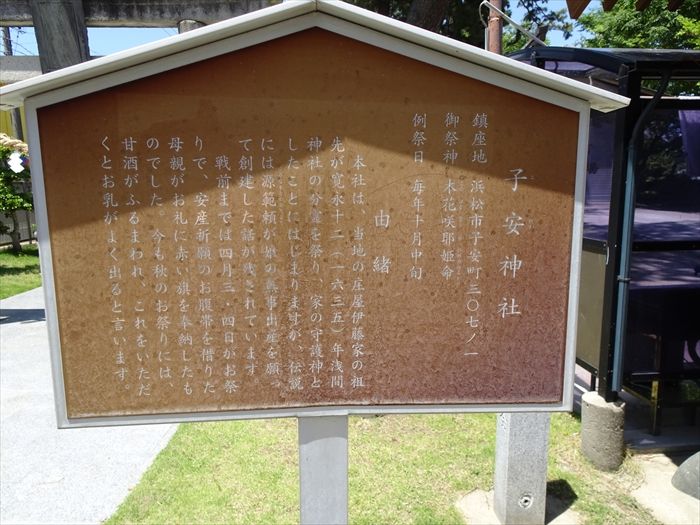 子安神社
鎮座地 浜松市子安町三〇七ノ一
御祭神 木花咲耶姫命
例祭日 毎年十月中旬
由緒
本社は、当地の庄屋伊藤家の祖
先が寛永十二(一六三五)年浅間
神社の分霊を祭り、家の守護神と
したことにはじまりますが、伝説
には源範頼が娘の無事出産を願っ
て創建した話が残されています。
戦前までは四月三・四日がお祭
りで、安産祈願のお腹帯を借りた
母親がお礼に赤い旗を奉納したも
のでした。今も秋のお祭りには、
甘酒がふるまわれ、これをいただ
くとお乳がよく出ると言います。